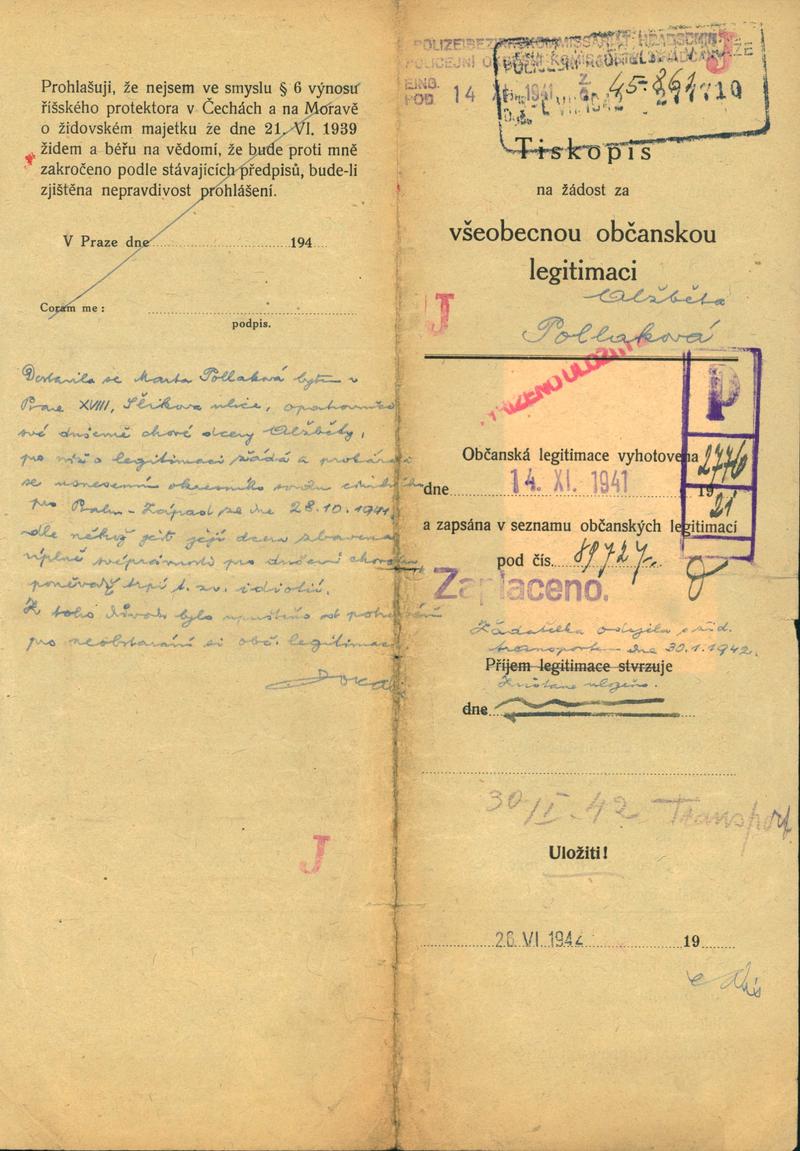 Prohlašuji, že nejsem ve smyslu § 6 výnosu
říšského protektora v Čechách a na Moravě
o židovském majetku že dne 21. VI. 1939
židem a béřu na vědomí, že bude proti mně
zakročeno podle stávajících předpisů, bude-li
zjištěna nepravdivost prohlášení.
V Praze dne 194
Coram me:
podpis.
Dostavila se Marta Pollaková bytem v
Praze XVIII, ulice,
své duševně choré dcery Alžběty,
pro níž o legitimaci žádá a
se usnesením okresního soudu
pro Prahu - Západ ze dne 28.10.1941,
dle něhož jest její dcera zbavena
úplně svéprávnosti pro duševní
poněvadž trpí t. zv. idiotií.
Z toho důvodu bylo upuštěno od
pro neobstarání si obč. legitimace.
J
POLICEJNÍ
14 1941 45-861
J
Tiskopis
na žádost za
všeobecnou občanskou
legitimaci
Alžběta
J
Pollaková
P
Občanská legitimace vyhotovena 2776
dne 14. XI. 1941 19
21
a zapsána v seznamu občanských legitimací
pod čís. 89727
Zaplaceno.
Žadatelka odejela s žid.
transportem dne 30.1.1942.
Příjem legitimace stvrzuje
uloženo.
dne
30/I.-42 Transport
Uložiti!
26. VI. 1942 19